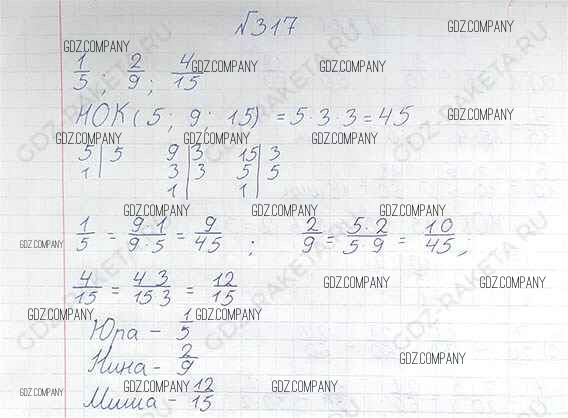 №317
GDZ.COMPANY
GDZ.COMPANY
1/5; 2/9; 4/15
GDZ.COMPANY
GDZ.COMPANY
НОК(5; 9; 15) = 5·3·3 = 45
GDZ.COMPANY
GDZ.COMPANY
GDZ.COMPANY
GDZ.COMPANY
5 | 5 9 | 3 15 | 3
1 | 3 | 3 5 | 5
1 | 1 |
GDZ.COMPANY
GDZ.COMPANY
1/5 = 9·1/9·5 = 9/45; 2/9 = 5·2/5·9 = 10/45;
GDZ.COMPANY
GDZ.COMPANY
GDZ.COMPANY
4/15 = 4 3/15 3 = 12/15
GDZ.COMPANY
GDZ.COMPANY
GDZ.COMPANY
GDZ.COMPANY
Юра - 1/5
Нина - 2/9
GDZ.COMPANY
GDZ.COMPANY
GDZ.COMPANY
GDZ.COMPANY
Миша - 12/15
GDZ-RAKETA.RU
GDZ-RAKETA.RU
GDZ-RAKETA.RU